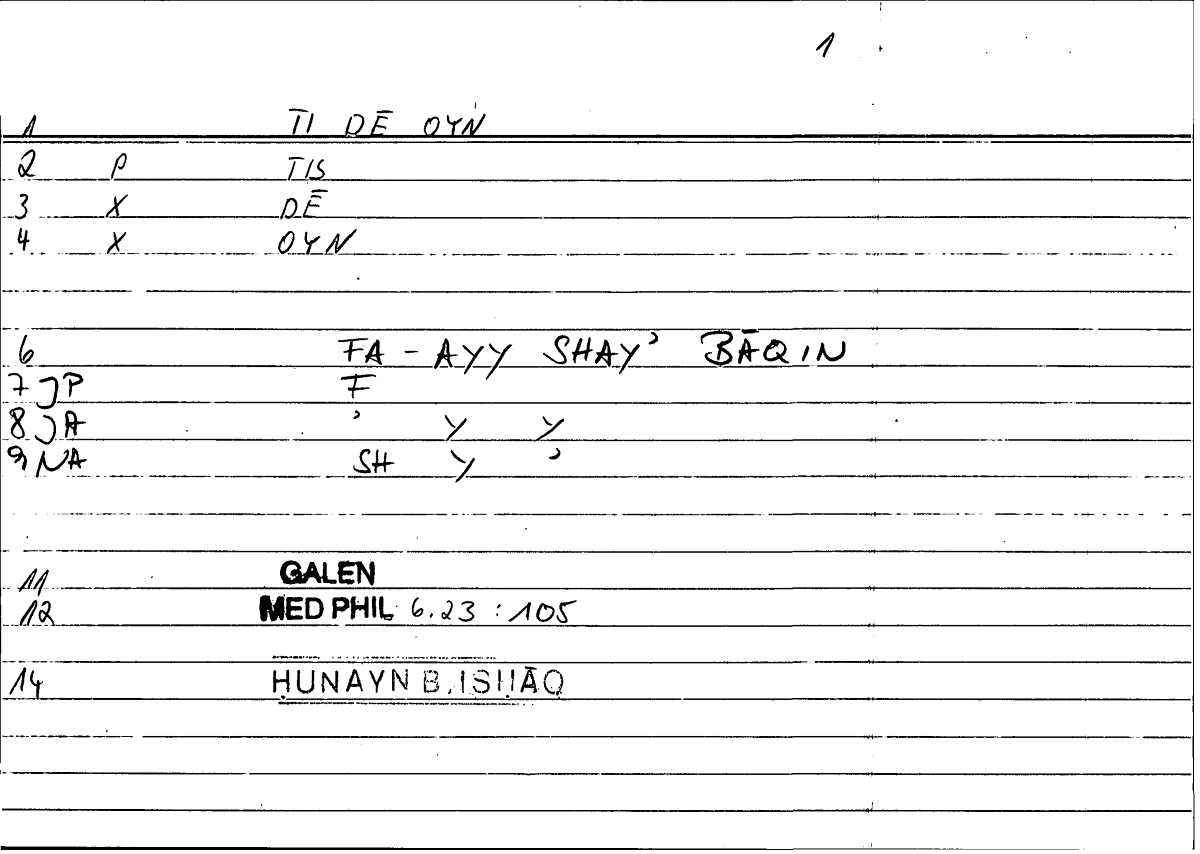 1
1 TI DĒ OYN
2 P TIS
3 X DĒ
4 X OYN
6 FA - AYY SHAY' BĀQIN
7 JP F
8 JA ' Y Y
9 NA SH Y '
11 GALEN
12 MED PHIL 6.23 : 105
14 ḤUNAYN B. ISḤĀQ